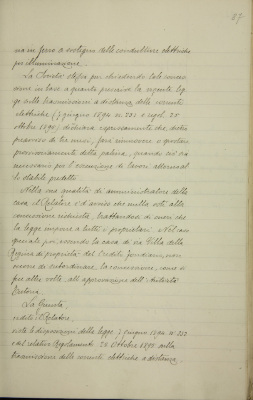 87
ma in ferro a sostegno delle condutture elettriche
per illuminazione.
La Società stessa pur chiedendo tale conces
sione in base a quanto prescrive la vigente leg
ge sulla trasmissione a distanza delle correnti
elettriche (7 giugno 1894 n. 232 e regol. 25
ottobre 1895) dichiara espressamente che, dietro
preavviso di tre mesi, farà rimuovere o spostare
provvisoriamente detta palina, quando ciò sia
necessario per l'esecuzione di lavori attorno al
lo stabile predetto.
Nella sua qualità di amministratore della
casa il Relatore è d'avviso che nulla osti alla
concessione richiesta, trattandosi di oneri che
la legge impone a tutti i proprietari. Nel caso
speciale poi, essendo la casa di via Villa della
Regina di proprietà del Credito Fondiario, con
viene di subordinare la concessione, come si
fece altre volte, all'approvazione dell'Autorità
tutoria.
La Giunta,
udito il Relatore,
viste le disposizioni della legge 7 giugno 1894 N. 232
e del relativo Regolamento 25 Ottobre 1895 sulla
trasmissione delle correnti elettriche a distanza,